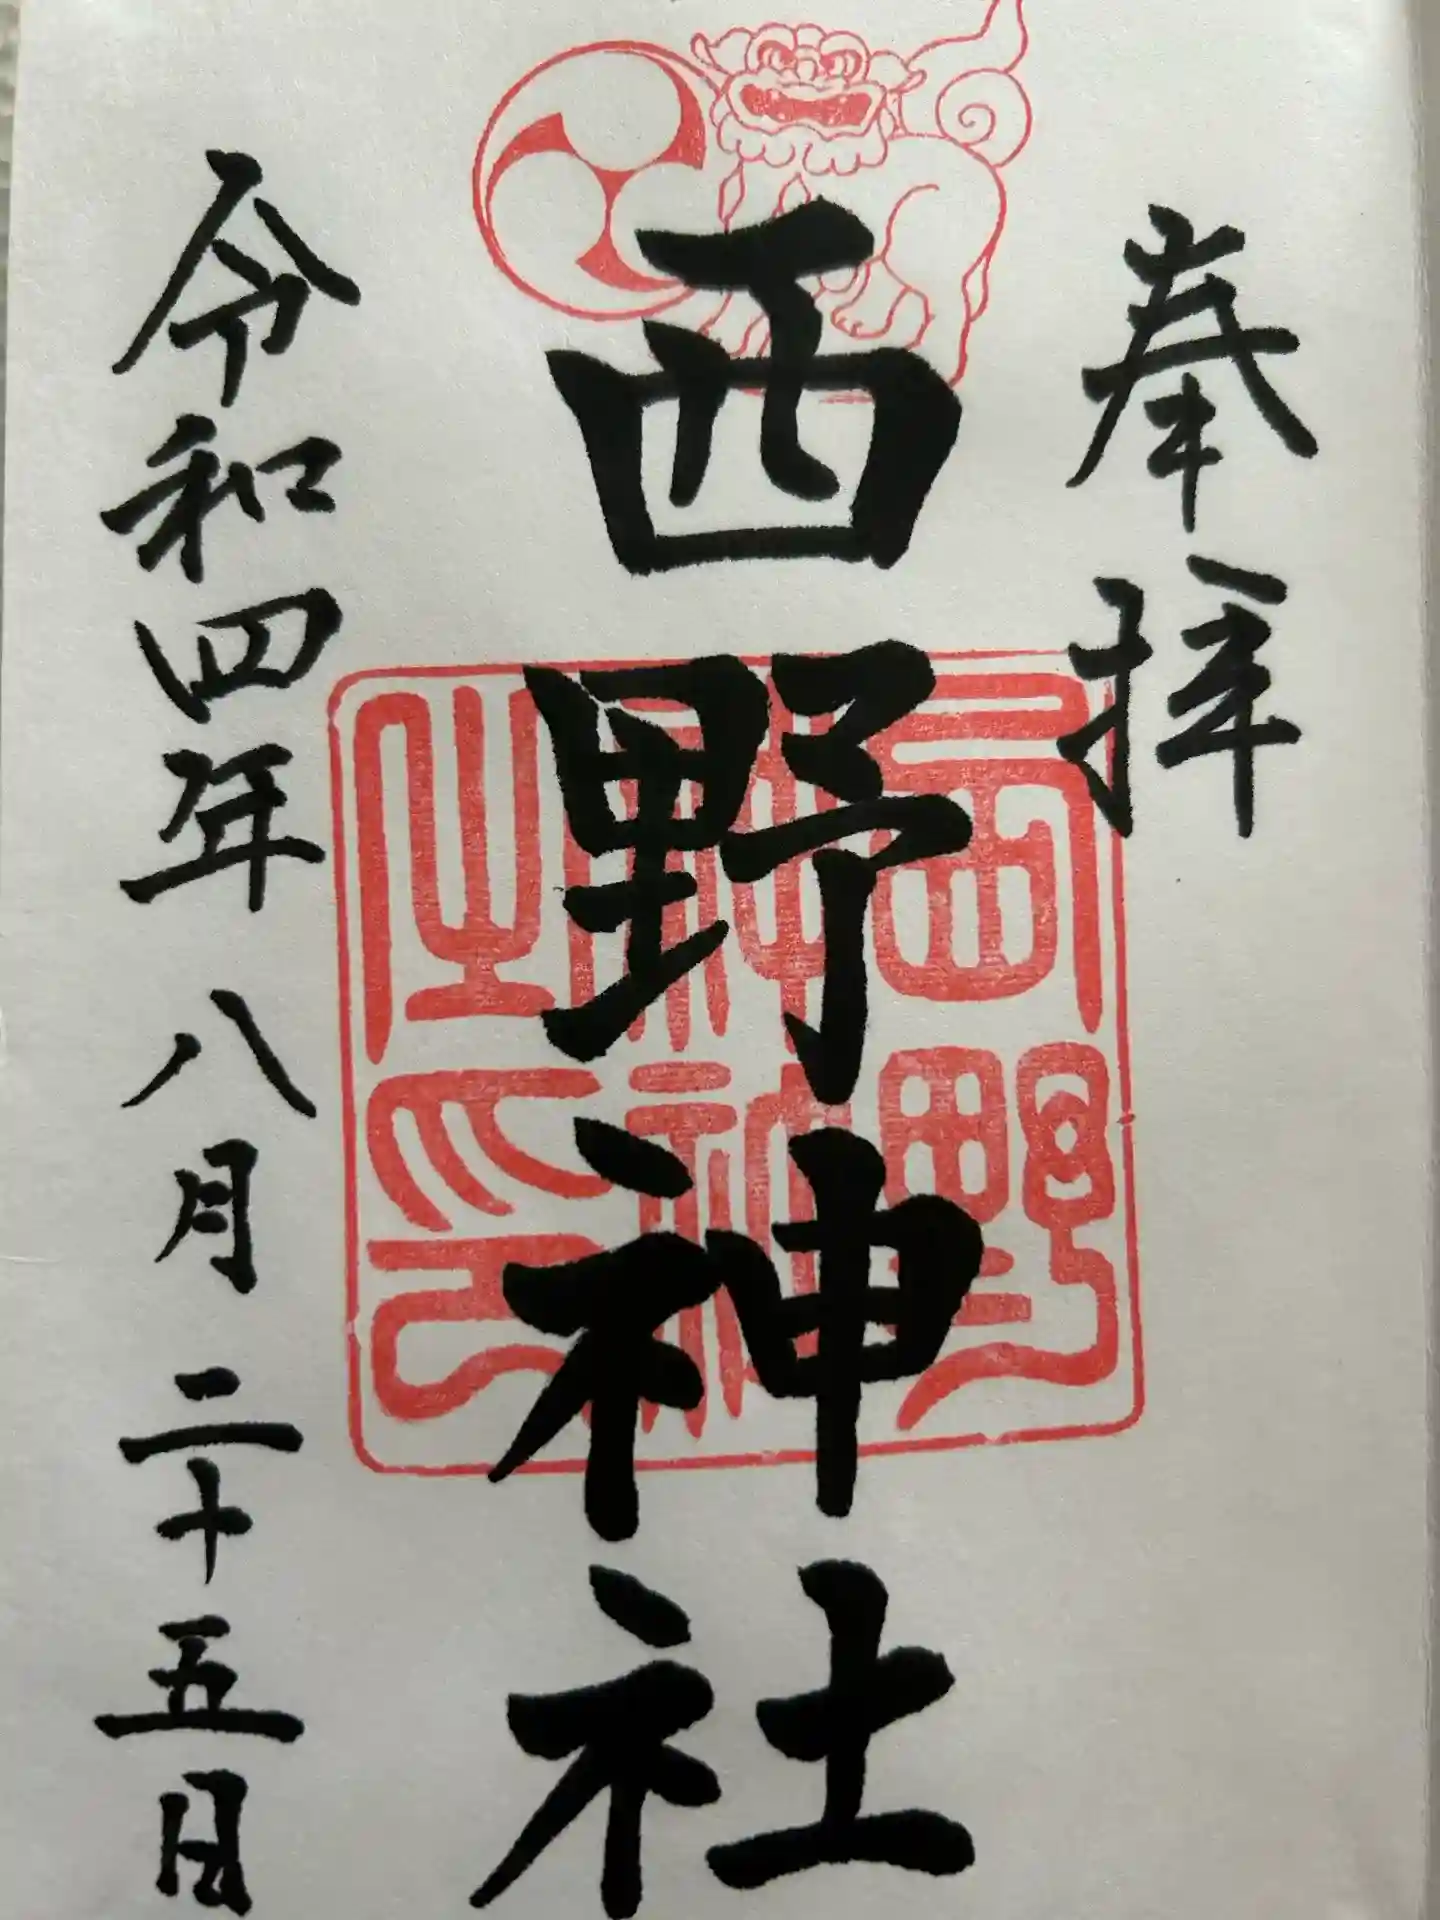 奉拝
西野神社
西野神社之印
令和四年八月二十五日